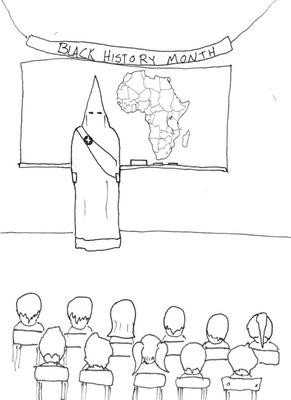 BLACK HISTORY MONTH